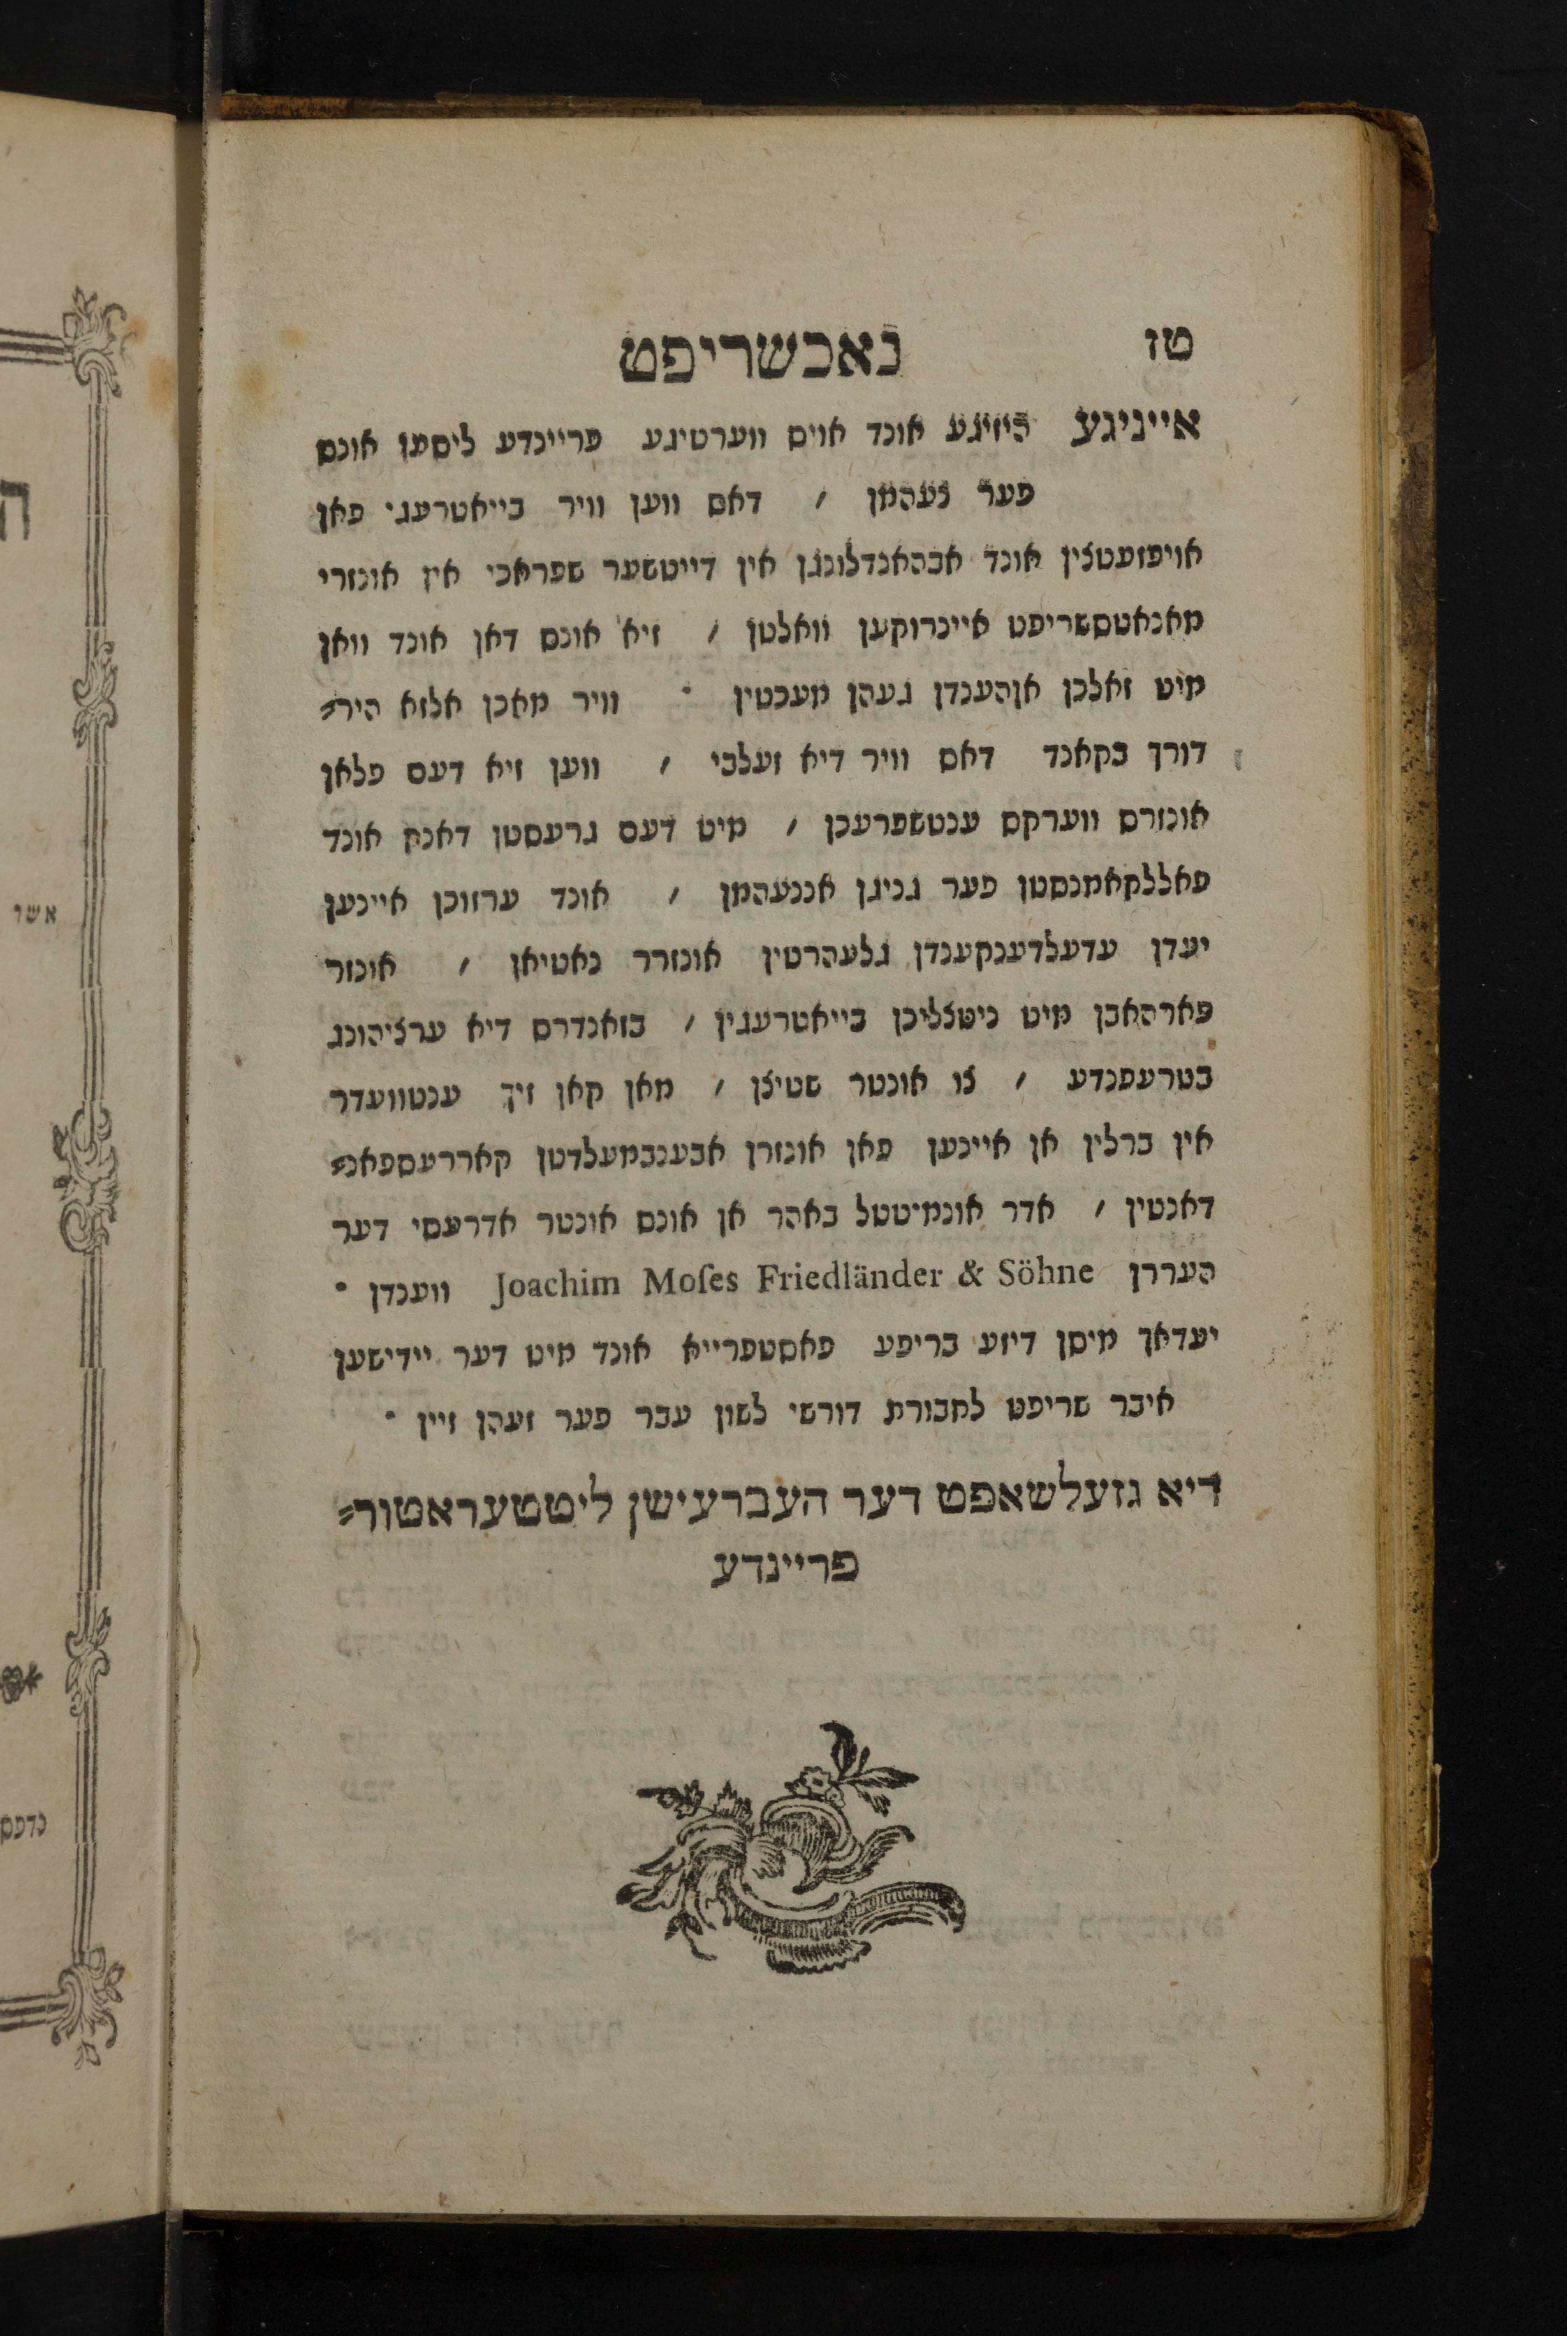 טז
נאכשריפט
אייניגע היזיגע אונד אויס ווערטיגע פריינדע ליסען אונס
פער נעהמן / דאס ווען וויר בייאטרעגי פאן
אויפזעטצין אונד אבהאנדלונגן אין דייטשער שפראכי אין אונזרי
מאנאטסשריפט איינרוקען וואלטן / זיא אונס דאן אונד וואן
מיט זאלכן אןהענדן געהן מעכטין · וויר מאכן אלזא היר⸗
דורך בקאנד דאס וויר דיא זעלבי / ווען זיא דעם פלאן
אונזרס ווערקס ענטשפרעכן / מיט דעם גרעסטן דאנק אונד
פאללקאמנסטן פער גניגן אננעהמן / אונד ערזוכן איינען
יעדן עדעלדענקענדן גלעהרטין אונזרר נאטיאן / אונזר
פארהאבן מיט ניטצליכן בייאטרעגין / בזאנדרס דיא ערציהונג
בטרעפנדע / צו אונטר שטיצן / מאן קאן זיך ענטוועדר
אין ברלין אן איינען פאן אונזרן אבענבמעלדטן קאררעספאנ⸗
דאנטין / אדר אונמיטטל באהר אן אונס אונטר אדרעסי דער
העררן Joachim Moſes Friedländer & Söhne ווענדן ·
יעדאך מיסן דיזע בריפע פאסטפרייא אונד מיט דער יידישען
איבר שריפט לחבורת דורשי לשון עבר פער זעהן זיין ·
דיא גזעלשאפט דער העברעישן ליטטעראטור⸗
פריינדע
ה
אשר
נדפס